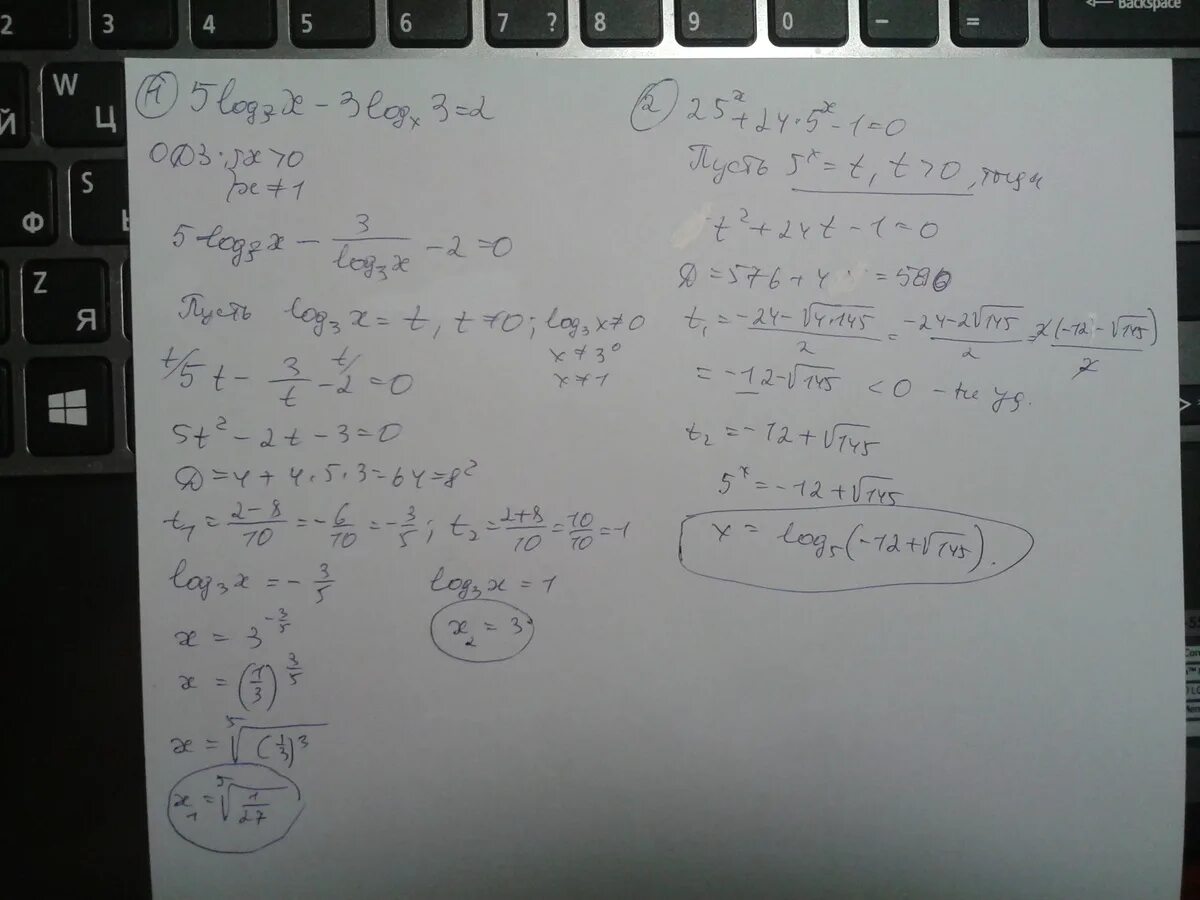 2 3 4 5 6 7 ? 8 9 0 - = Backspace
W Ц
Й
S
Ф Ы
Z Я
① 5log₃x - 3logₓ3 = 2
ОДЗ: {x>0
{x≠1
5log₃x - 3/log₃x - 2 = 0
Пусть log₃x = t, t≠0; log₃x≠0
x≠3⁰
x≠1
t/ 5t - 3/t - t/ 2 = 0
5t² - 2t - 3 = 0
D = 4 + 4·5·3 = 64 = 8²
t₁ = (2-8)/10 = -6/10 = -3/5; t₂ = (2+8)/10 = 10/10 = 1
log₃x = -3/5
x = 3^(-3/5)
x = (1/3)^(3/5)
x = ⁵√((1/3)³)
x₁ = ⁵√(1/27)
log₃x = 1
x₂ = 3
② 25ˣ + 24·5ˣ - 1 = 0
Пусть 5ˣ = t, t>0, тогда
t² + 24t - 1 = 0
D = 576 + 4 = 580
t₁ = (-24-√(4·145))/2 = (-24-2√145)/2 = 2(-12-√145)/2
= -12-√145 < 0 - не уд.
t₂ = -12+√145
5ˣ = -12+√145
x = log₅(-12+√145).